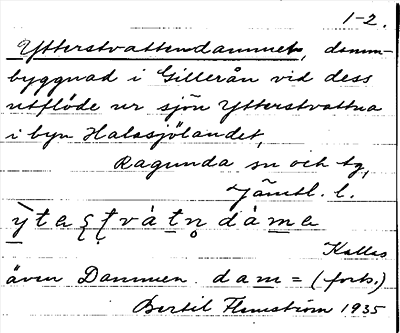 1-2.
Ytterstvattendammen, damm-
byggnad i Gillerån vid dess
utflöde ur sjön Ytterstvattna
i byn Halasjölandet,
Ragunda sn och tg,
Jämtl. l.
ỳtaʂtvàtn̥dàma
Kallas
även Dammen. dam = (forts.)
Bertil Flemström 1935